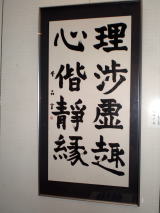 理渉虚趣
心偕静縁